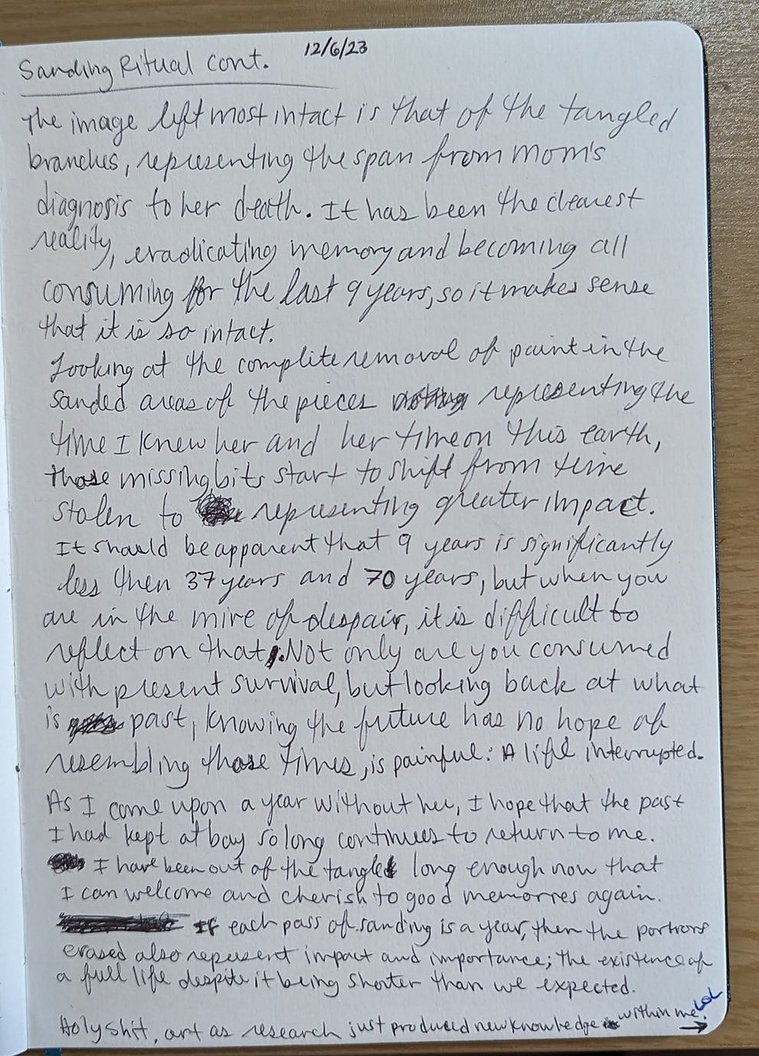 Sanding Ritual cont. 12/6/23
The image left most intact is that of the tangled
branches, representing the span from mom's
diagnosis to her death. It has been the clearest
reality, eradicating memory and becoming all
consuming for the last 9 years, so it makes sense
that it is so intact.
Looking at the complete removal of paint in the
sanded areas of the pieces representing the
time I knew her and her time on this earth,
those missing bits start to shift from time
stolen to representing greater impact.
It should be apparent that 9 years is significantly
less then 37 years and 70 years, but when you
are in the mire of despair, it is difficult to
reflect on that. Not only are you consumed
with present survival, but looking back at what
is past, knowing the future has no hope of
resembling those times, is painful: A life interrupted.
As I come upon a year without her, I hope that the past
I had kept at bay so long continues to return to me.
I have been out of the tangle long enough now that
I can welcome and cherish to good memories again.
If each pass of sanding is a year, then the portions
erased also represent impact and importance; the existence of
a full life despite it being shorter than we expected.
Holy shit, art as research just produced new knowledge within me. LOL →